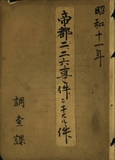 昭和十一年
帝都二二六事件ニ関スル件
調査課